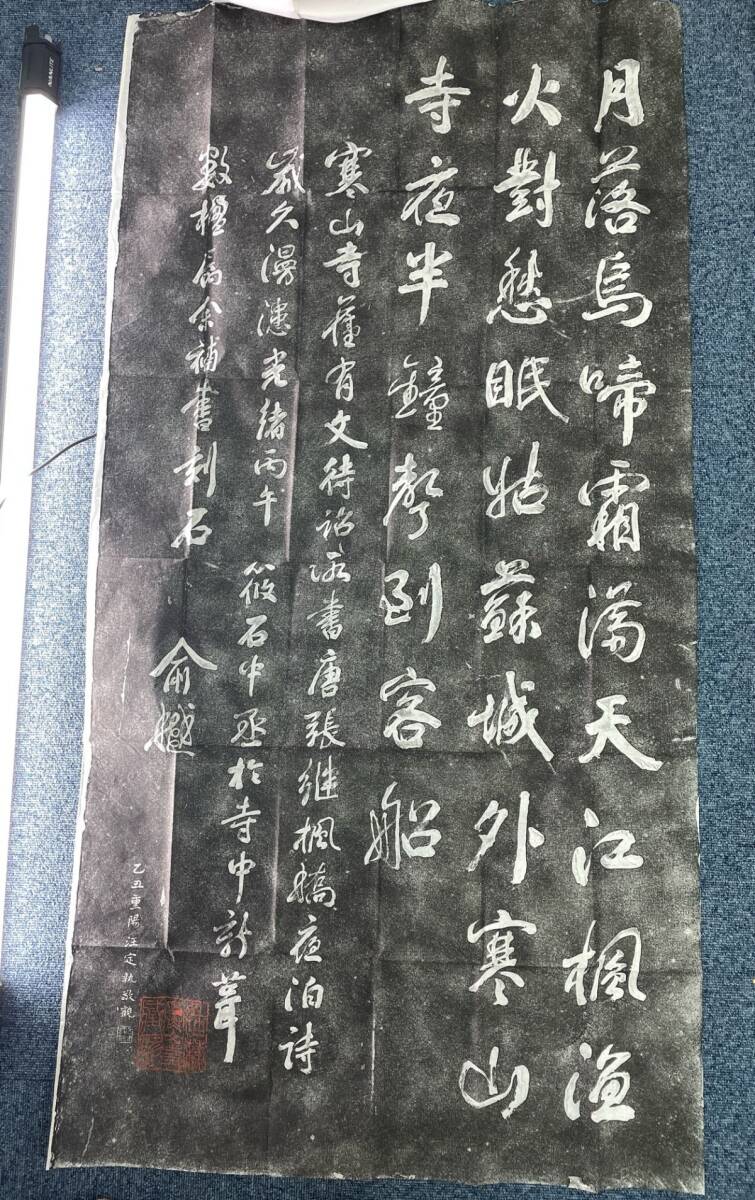 月落烏啼霜滿天江楓漁
火對愁眠姑蘇城外寒山
寺夜半鐘聲到客船
寒山寺舊有文待詔所書唐張繼楓橋夜泊詩
歲久漫漶光緒丙午
筱石中丞於寺中新葺
數楹屬余補書刻石
俞樾
乙丑重陽汪定執敬觀
NANLITE